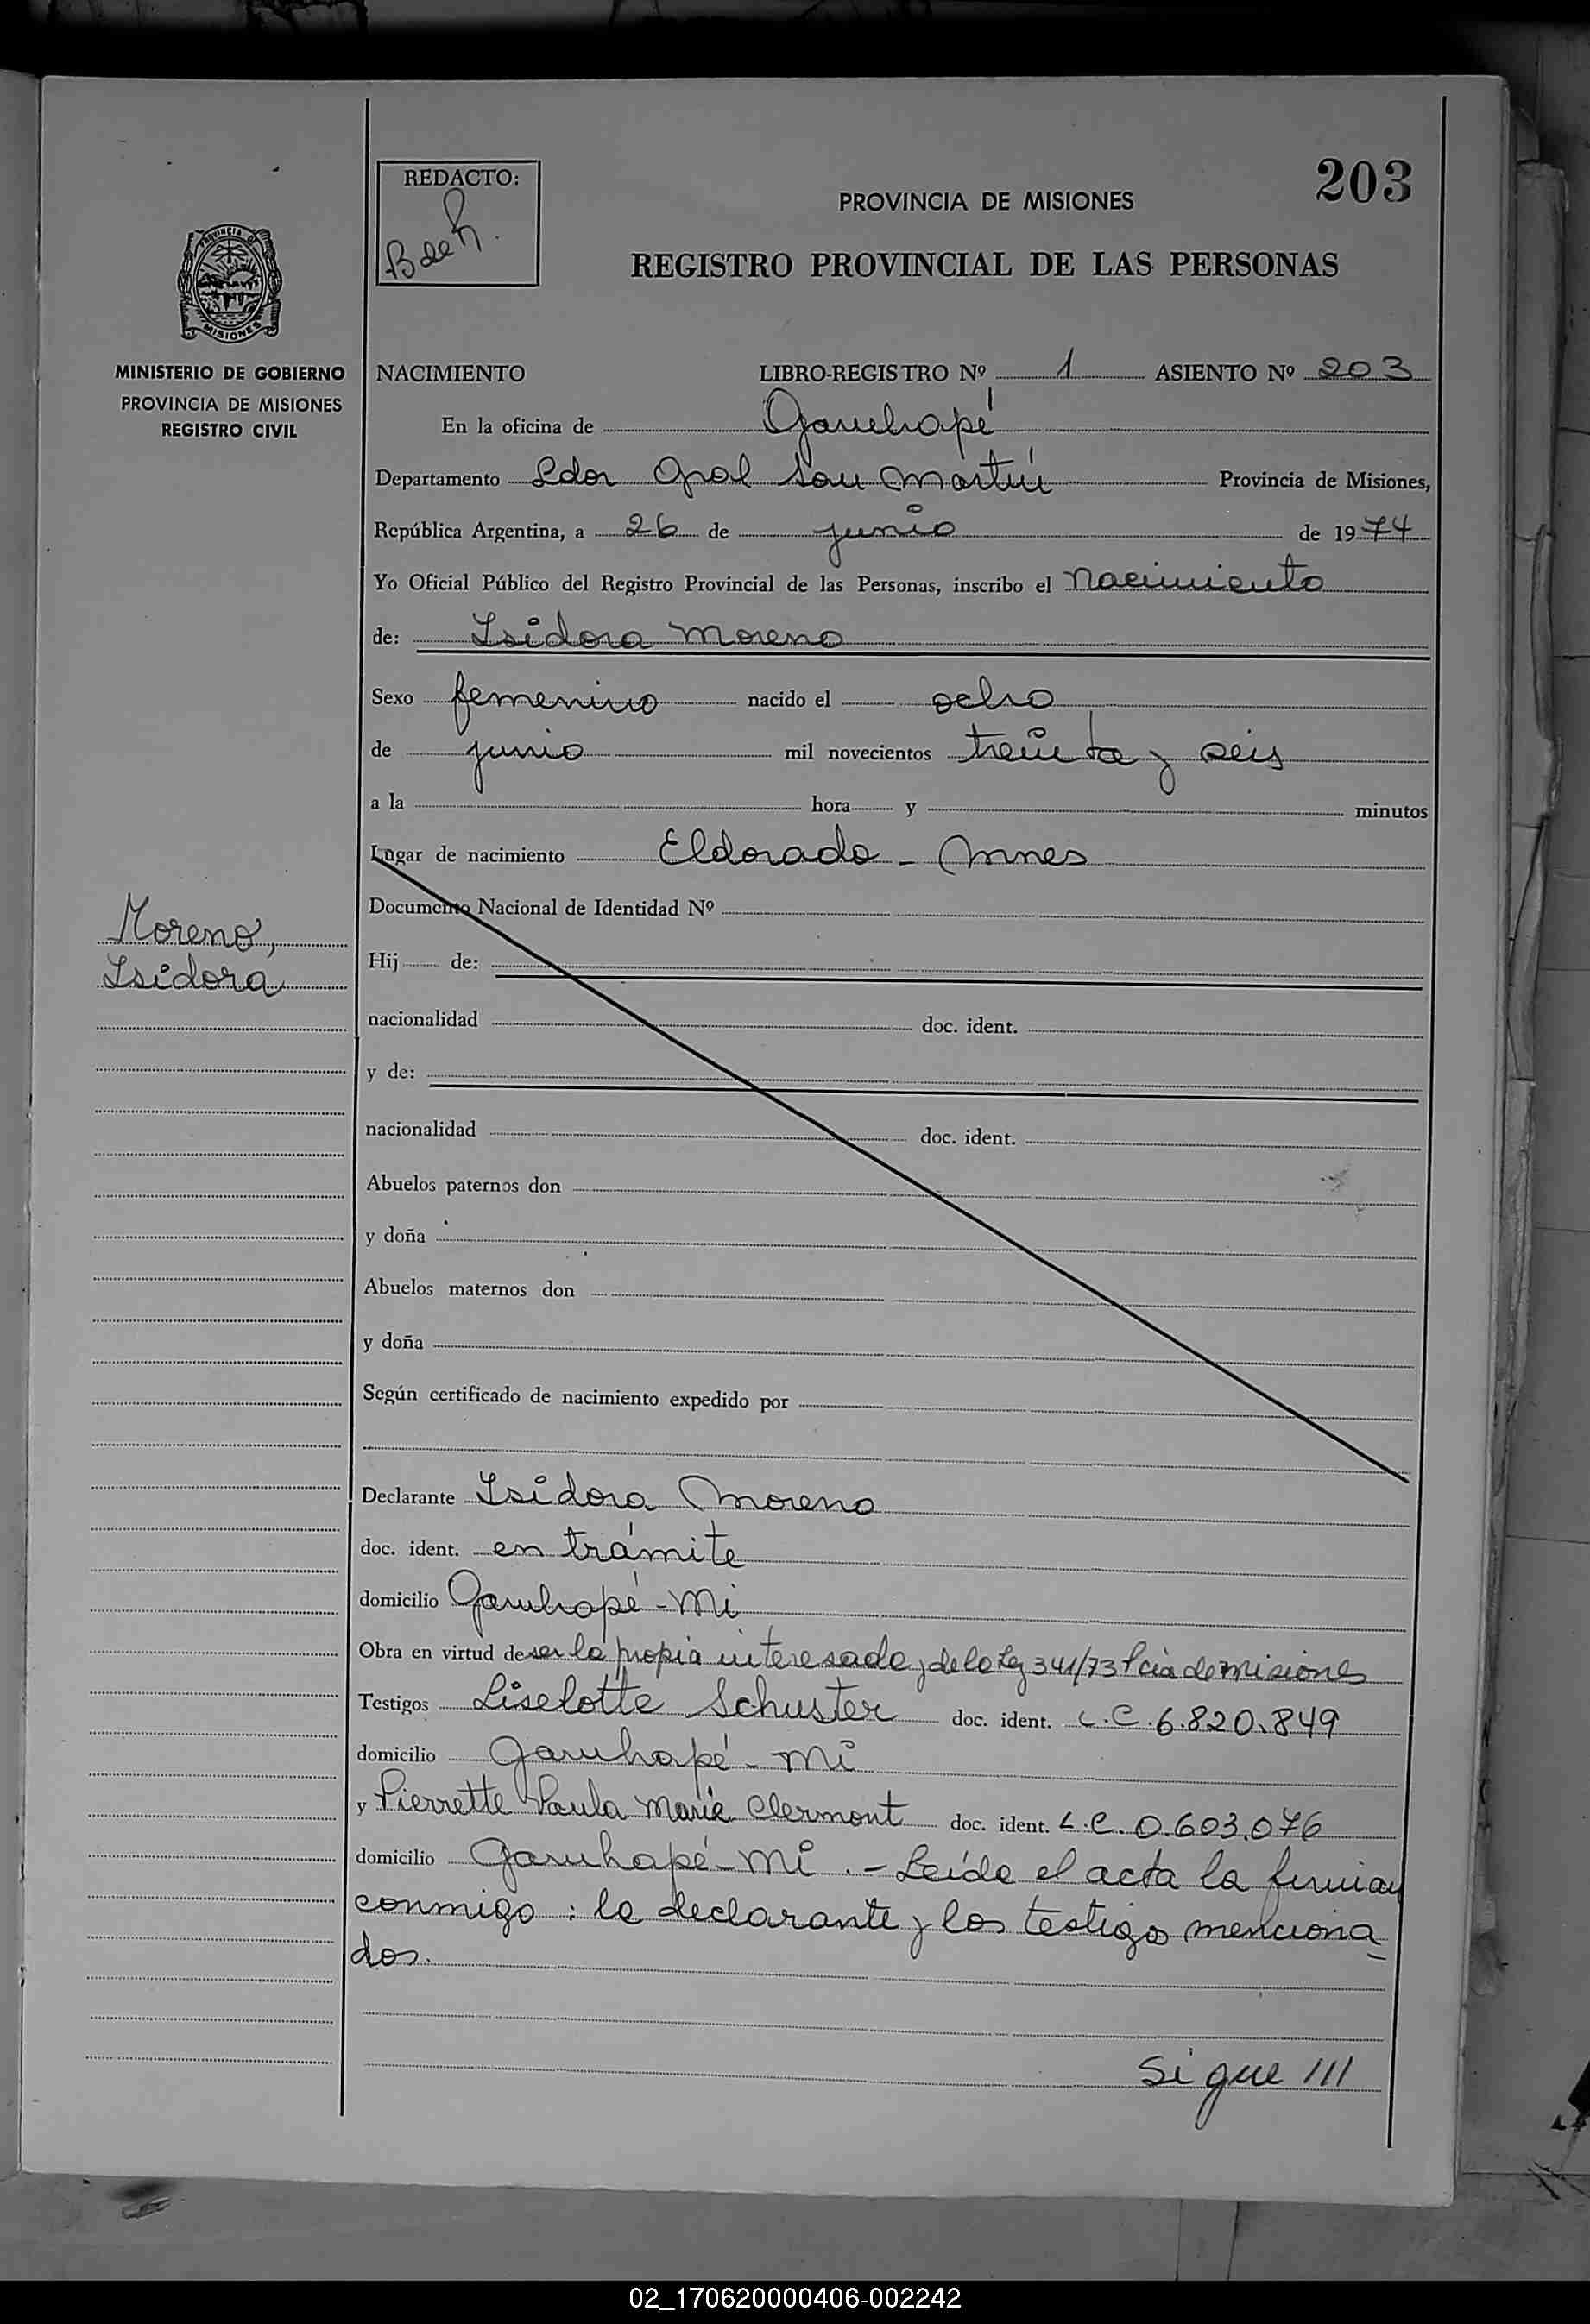 203
REDACTO:
PROVINCIA DE MISIONES
REGISTRO PROVINCIAL DE LAS PERSONAS
PROVINCIA D
MISIONES
MINISTERIO DE GOBIERNO
PROVINCIA DE MISIONES
REGISTRO CIVIL
NACIMIENTO LIBRO-REGISTRO Nº 1 ASIENTO Nº 203
En la oficina de Garuhapé
Departamento Ldor Gral San Martín Provincia de Misiones,
República Argentina, a 26 de junio de 1974
Yo Oficial Público del Registro Provincial de las Personas, inscribo el Nacimiento
de: Isidora Moreno
Sexo femenino nacido el ocho
de junio mil novecientos treinta y seis
a la hora y minutos
Lugar de nacimiento Eldorado - Mnes
Documento Nacional de Identidad Nº
Moreno,
Isidora
Hij de:
nacionalidad doc. ident.
y de:
nacionalidad doc. ident.
Abuelos paternos don
y doña
Abuelos maternos don
y doña
Según certificado de nacimiento expedido por
Declarante Isidora Moreno
doc. ident. en trámite
domicilio Garuhapé - Mi
Obra en virtud de ser la propia interesada y de la Ley 341/73 Pcia de Misiones
Testigos Liselotte Schuster doc. ident. L.C. 6.820.849
domicilio Garuhapé - Mi
y Pierrette Paula Marie Clermont doc. ident. L.C. 0.603.076
domicilio Garuhapé - Mi .- Leída el acta la firman
conmigo: la declarante y los testigos menciona
dos.
Sigue ///
02_170620000406-002242